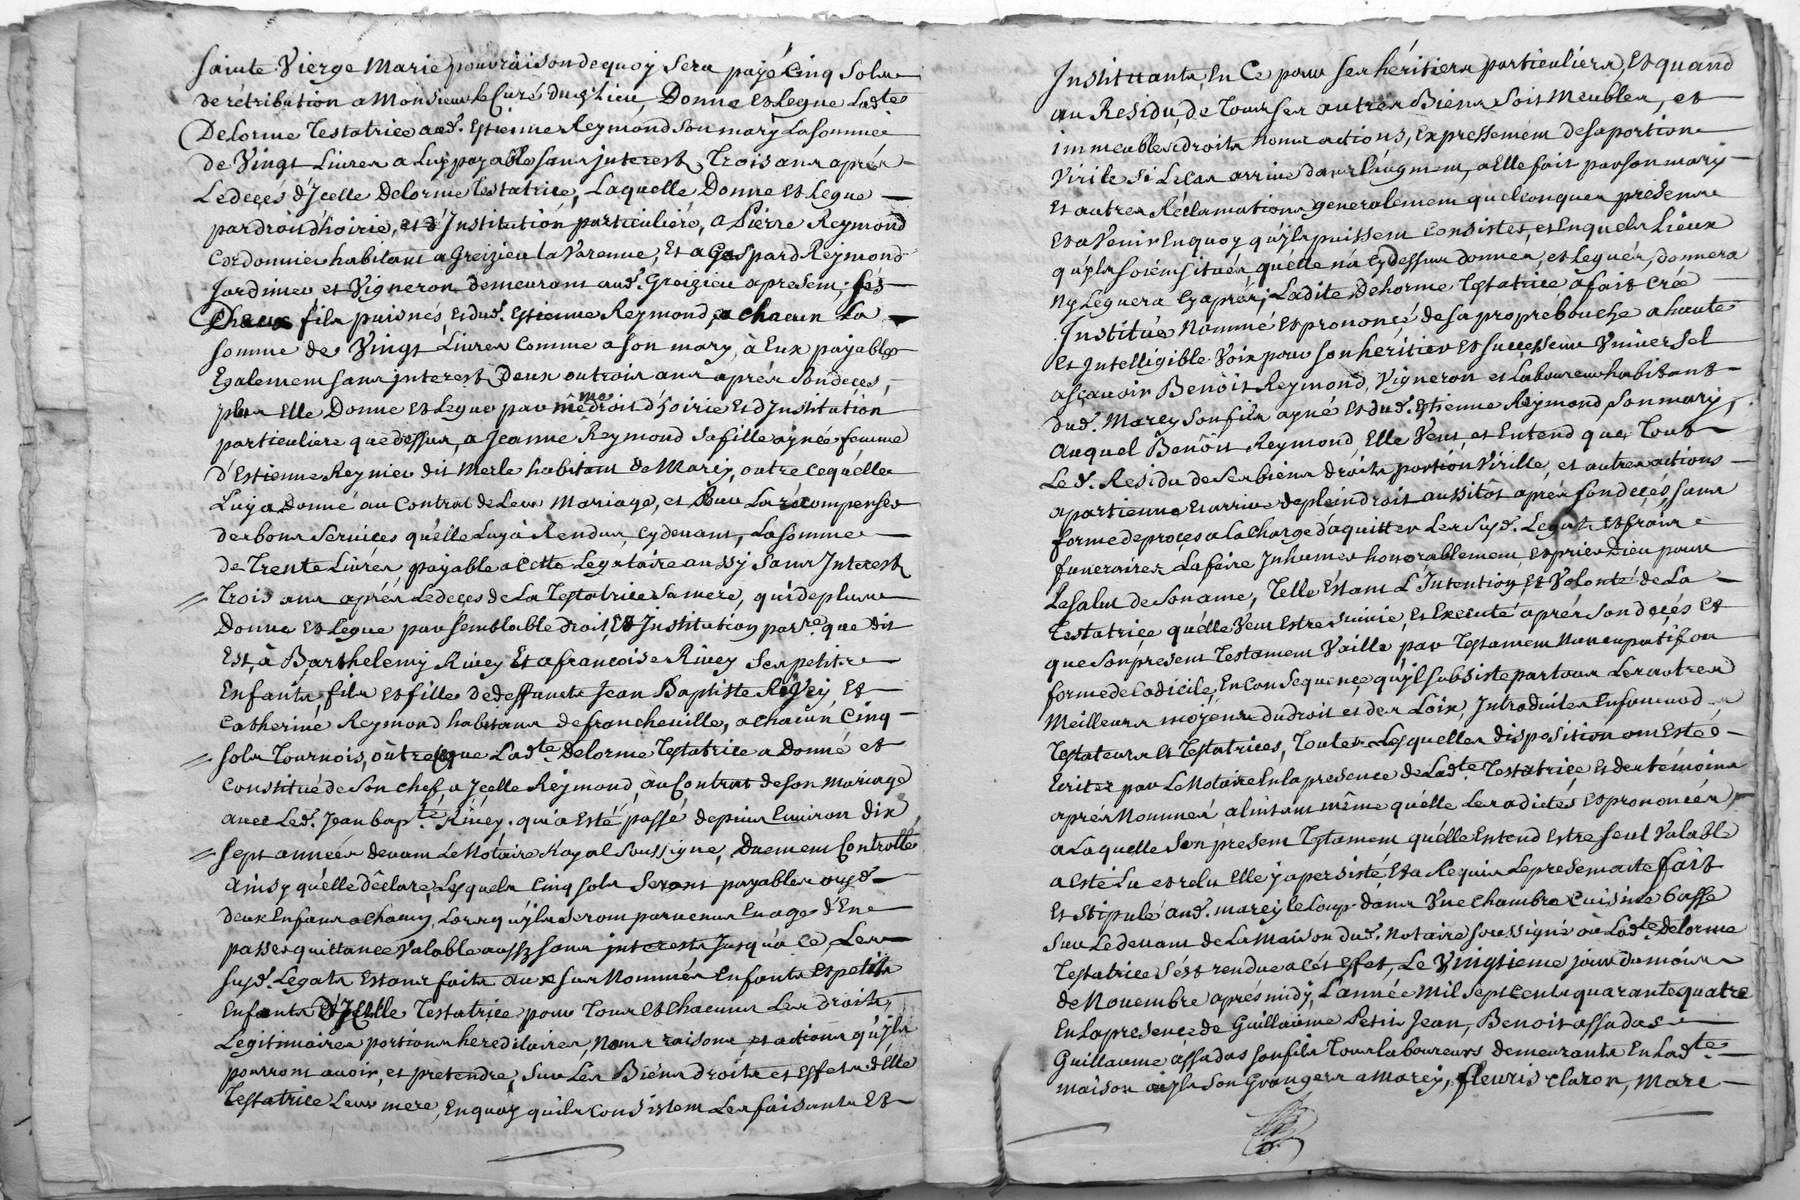 Sainte Vierge Marie pour raison de quoy sera payé Cinq Sols
de rétribution a Monsieur le Curé dud. Lieu, Donne et Legue Lad.te
Delorme Testatrice aud. Estienne Reymond Son mary La Somme
de Vingt Livres a Luy payable sans jnterest Trois ans aprés
Le deçes d'Jcelle Delorme Testatrice, Laquelle Donne et Legue
par droit d'hoirie, et d'Jnstitution particuliére, a Pierre Reymond
Cordonnier habitant a Greizieu la Varenne, Et a Gaspard Reymond
Jardinier et Vigneron demeurant aud. Greizieu a present, ses
Deux fils puisnés, Et dud. Estienne Reymond, a chacun La
somme de Vingt Livres comme a son mary, à Eux payables
Egalement sans jnterest Deux ou trois ans aprés Son deçes,
plus Elle Donne et Legue par même droit d'hoirie Et d'Jnstitution
particuliere que dessus, a Jeanne Reymond Sa fille aynée femme
d'Estienne Reynier dit Merle habitant de Marcy, outre ce qu'elle
Luy a Donné au Contrat de Leur Mariage, et Pour La récompenser
des bons Services qu'elle Luy a Rendus, cy devant, La somme
de Trente Livres payable a cette Legatáire aussy Sans Jnterest
Trois ans aprés Le deçes de La Testatrice Sa mere, qui de plus
Donne et Legue par Semblable droit, Et Jnstitution par.re que dit
Est, à Barthelemy Rivey Et a françoise Rivey Ses petits
Enfants, fils et fille de deffunct Jean Baptiste Rivey Et
Catherine Reymond habitans de francheville, a chacun Cinq
Sols Tournois, outre ce que Lad.te Delorme Testatrice a Donné et
Constitué de Son chef, a Jcelle Reymond, au Contrat de Son Mariage
avec Led. Jean bap.te Rivey. qui a Esté passé depuis Environ dix
Sept années devant Le Notaire Royal Soussigné, Duement Controllé
Ainsy qu'elle déclare, Lesquels Cinq Sols Seront payables ausd.
deux Enfans a chacun, Lorsqu'jls Seront parvenus En age d'En
passer quittance Valable aussy sans jnterests Jusqu'a ce, Les
Susd. Legats Estans faits aux Sus Nommés Enfants Et petits
Enfants d'Jcelle Testatrice pour Tous Et chacuns Les droits,
Legitimaires portions hereditaires, Noms raisons, et actions qu'jls
pourront avoir, et prétendre, Sur Les Biens droits et Effets d'Elle
Testatrice Leur mere, En quoy qu'ils Consistent Les faisants Et
Jnstituants En Ce pour Ses héritiers particuliers, Et quand
au Residu, de Tous Ses autres Biens Soit Meubles, et
immeubles droits noms actions, Expressément de Sa portion
Virile Si Le Cas arrive dans L'augment, a Elle fait par Son mary
Et autres Réclamations generalement quelconques presens
Et a Venir En quoy qu'jls puissent Consister, et En quels Lieux
qu'jls Soient Situés qu'elle n'a Cy dessus donnés, et Legués, donnera
Ny Leguera Cy aprés; Ladite Delorme Testatrice a fait Créé
Jnstitué Nommé Et prononçé de Sa propre bouche a haute
Et Jntelligible Voix pour Son héritier Et Successeur Universel
a Sçavoir Benoit Reymond, Vigneron et Laboureur habitant
dud. Marcy Son fils ayné Et dud. Estienne Reymond Son mary,
Auquel Benoit Reymond, Elle Veut, et Entend que Tout
Le d. Residu de Ses biens droits portion Virille, et autres actions
apartienne Et arrive de plein droit aussitôt aprés Son deçés, Sans
forme de proçes a la Charge d'aquitter Les Susd. Legats Et frais
funeraires La faire Jnhumer honorablement, et prier Dieu pour
Le Salut de Son ame, Telle Estant L'Jntention, Et Volonté de La
Testatriçe qu'elle Veut Estre Suivie, Et Executé aprés Son deçés Et
que Son present Testament Vaille par Testament Nuncupatif ou
forme de Codicile, En Consequençe, qu'jl Subsiste par tous Les autres
Meilleurs moyens du droit et des Loix, Jntroduites En faveur des
Testateurs Et Testatrices, Toutes Lesquelles disposition ont Esté
Ecrites par Le Notaire En la presence de Lad.te Testatriçe Et des témoins
aprés Nommés, a l'instant même qu'elle Les a dictés Et prononcées,
a Laquelle Son present Testament qu'elle Entend Estre Seul Valable
a Esté Lu et relu Elle y a persisté Et a Requis Le present acte fait
Et Stipulé aud. marcy le Loup dans Une Chambre Cuisine basse
Sur Le devant de La Maison dud. Notaire Soussigné où Lad.te Delorme
Testatrice s'est rendue a cét effet, Le Vingtieme jour du mois
de Novembre aprés midy, L'année Mil Sept Cents quarante quatre
En La presence de Guillaume Petit Jean, Benoit assadas
Guillaume assadas Son fils Tous laboureurs demeurants En Lad.te
maison ou jls Son Grangers a Marcy, fleuris claron, Marc